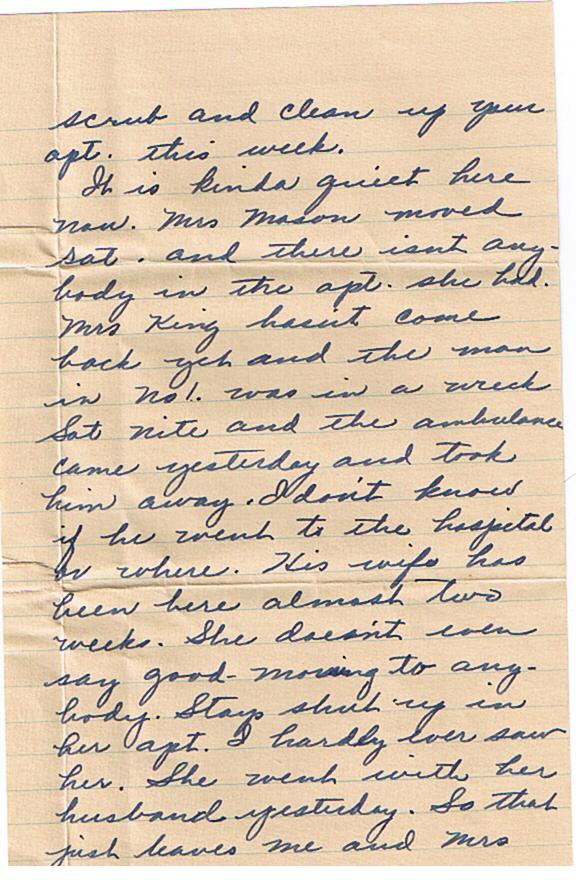 scrub and clean up your
apt. this week.
It is kinda quiet here
now. Mrs Mason moved
sat. and there isnt any-
body in the apt. she had.
Mrs King hasn't come
back yet and the man
in no 1. was in a wreck
Sat nite and the ambulance
came yesterday and took
him away. I don't know
if he went to the hospital
or where. His wife has
been here almost two
weeks. She doesn't even
say good-morning to any-
body. Stays shut up in
her apt. I hardly ever saw
her. She went with her
husband yesterday. So that
just leaves me and Mrs